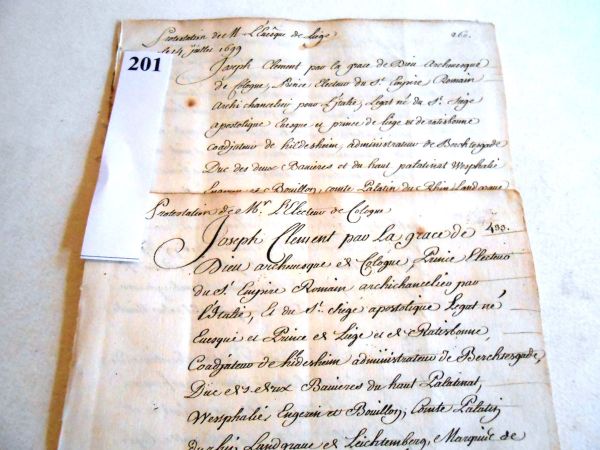 201
Protestation de M L'Evêque de Liege
du 14 juillet 1699
260.
Joseph Clement par la grace de Dieu Archevesque
de Cologne, Prince Electeur du St. Empire Romain
Archi chancelier pour L'Italie, Legat né du St. Siège
apostolique Evesque et prince de Liege et de ratisbonne
coadjuteur de hildesheim, administrateur de Berchtesgade
Duc des deux Bavieres et du haut palatinat Westphalie
Engarie et Bouillon, comte Palatin du Rhin Landgrave
Protestation de Mr. L'Electeur de Cologne
Joseph Clement par La grace de
Dieu archevesque de Cologne Prince Electeur
du St. Empire Romain archichancelier par
l'Italie, Et du St. Siège apostolique Legat né
Evesque et Prince de Liège et de Ratisbonne,
Coadjuteur de hildesheim administrateur de Berchtesgade,
Duc des deux Bavieres du haut Palatinat,
Westphalie, Engerin et Bouillon, Comte Palatin
du rhin, Landgrave de Leichtemberg, Marquis de